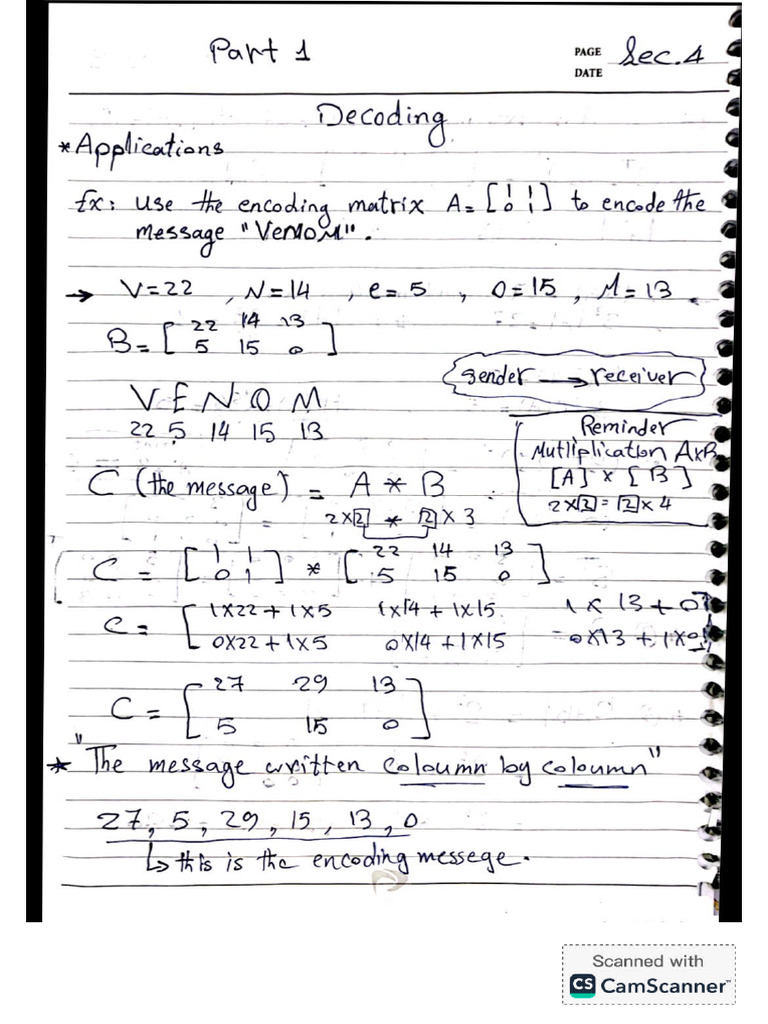 Part 1
PAGE Sec.4
DATE
Decoding
*Applications
Ex: Use the encoding matrix A= [1 1
0 1] to encode the
message "VeNOM".
→ V=22 , N=14 , e=5 , O=15 , M=13
B= [22 14 13
5 15 0]
sender → receiver
V E N O M
22 5 14 15 13
Reminder
Mutliplication AxB
[A] x [B]
2x2 = 2x4
C (the message) = A * B
= 2x2 * 2x3
C = [1 1
0 1] * [22 14 13
5 15 0]
C = [1x22+1x5 1x14+1x15 1x13+0
0x22+1x5 0x14+1x15 =0x13+1x0]
C = [27 29 13
5 15 0]
* "The message written coloumn by coloumn"
27, 5, 29, 15, 13, 0
↳ this is the encoding messege.
Scanned with
CS CamScanner